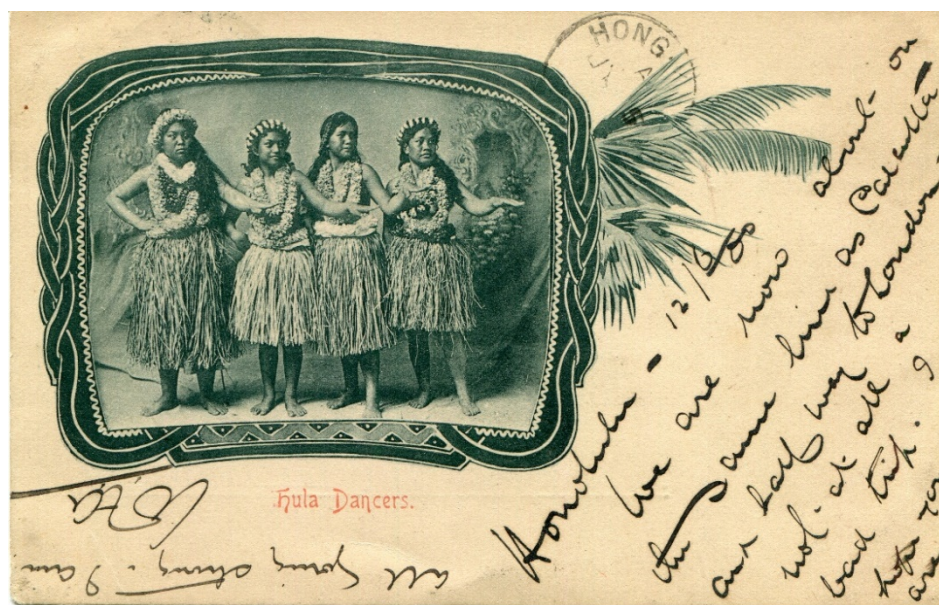 HONG
Hula Dancers.
Honolulu - 12/5/00
We are now about on
the same line as Calcutta
and half way to London
not at all a
bad trip. I
hope you
are
all going strong. I am